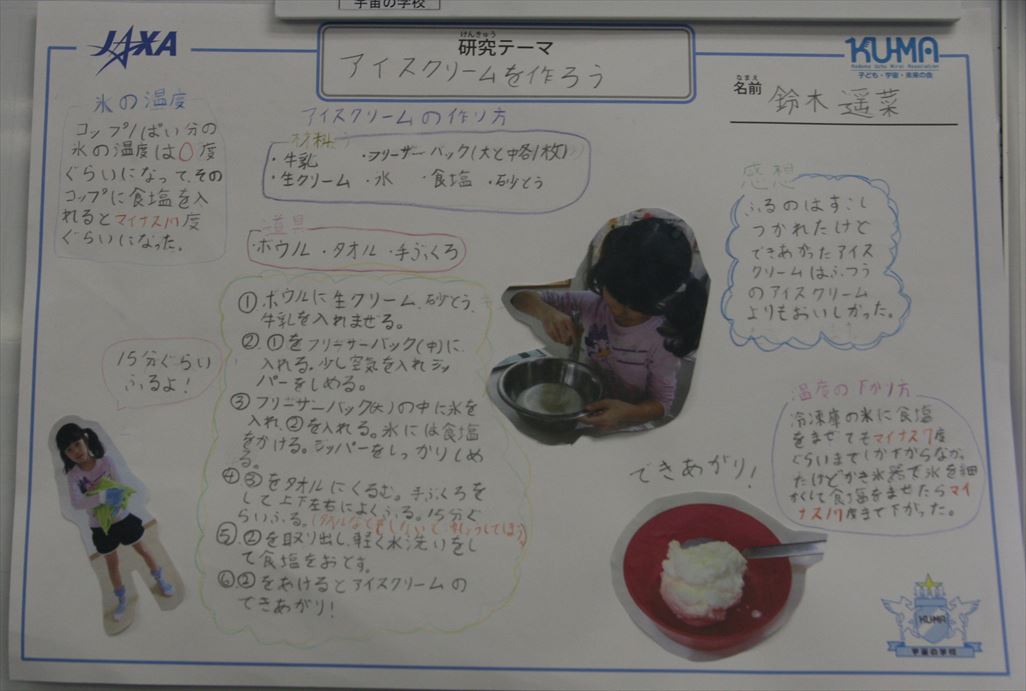 宇宙の学校
JAXA
けんきゅう
研究テーマ
アイスクリームを作ろう
KU-MA
Kodomo Uchu Mirai Association
子ども・宇宙・未来の会
なまえ
名前 鈴木遥菜
氷の温度
コップ1ぱい分の
氷の温度は0度
ぐらいになって、その
コップに食塩を入
れるとマイナス11度
ぐらいになった。
アイスクリームの作り方
材料
・牛乳 ・フリーザーバック(大と中各1枚)
・生クリーム ・氷 ・食塩 ・砂とう
道具
・ボウル ・タオル ・手ぶくろ
① ボウルに生クリーム、砂とう、
牛乳を入れまぜる。
② ①をフリーザーバック(中)に
入れる。少し空気を入れジッ
パーをしめる。
③ フリーザーバック(大)の中に氷を
入れ、②を入れる。氷には食塩
をかける。ジッパーをしっかりしめ
る。
④ ③をタオルにくるむ。手ぶくろを
して上下左右によくふる。15分ぐ
らいふる。
⑤ ②を取り出し、軽く水洗いをし
て食塩をおとす。
⑥ ②をあけるとアイスクリームの
できあがり!
15分ぐらい
ふるよ!
感想
ふるのはすこし
つかれたけど
できあがったアイス
クリームはふつう
のアイスクリーム
よりもおいしかった。
温度の下がり方
冷凍庫の氷に食塩
をまぜてもマイナス7度
ぐらいまでしか下がらなかっ
たけどかき氷器で氷を細
かくして食塩をまぜたらマイ
ナス11度まで下がった。
できあがり!
KUMA
宇宙の学校